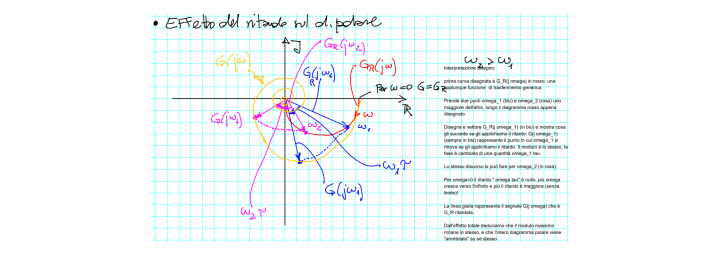 • Effetto del ritardo sul d. polare
J
G_R(jω_2)
ω_2 > ω_1
G(jω)
G_R(jω_1)
G_R(jω)
Per ω=0 G=G_R
ℝ
ω
G(jω_2)
ω_2
ω_1
ω_1 τ
G(jω_1)
ω_2 τ
Interpretazione disegno:
prima curva disegnata è G_R(j omega) in rosso: una
qualunque funzione di trasferimento generica.
Prende due punti omega_1 (blu) e omega_2 (rosa) uno
maggiore dell'altro, lungo il diagramma rosso appena
disegnato.
Disegna e vettore G_R(j omega_1) (in blu) e mostra cosa
gli succede se gli applichiamo il ritardo: G(j omega_1)
(sempre in blu) rappresenta il punto in cui omega_1 si
ritrova se gli applichiamo il ritardo. Il modulo è lo stesso, la
fase è cambiata di una quantità omega_1 tau.
Lo stesso discorso si può fare per omega_2 (in rosa).
Per omega=0 il ritardo " omega tau" è nullo, più omega
cresce verso l'infinito e più il ritardo è maggiore (senza
limite)!
La linea gialla rappresenta il segnale G(j omega) che è
G_R ritardata.
Dall'effetto totale deduciamo che il modulo massimo
rimane lo stesso, e che l'intero diagramma polare viene
"arrotolato" su sé stesso